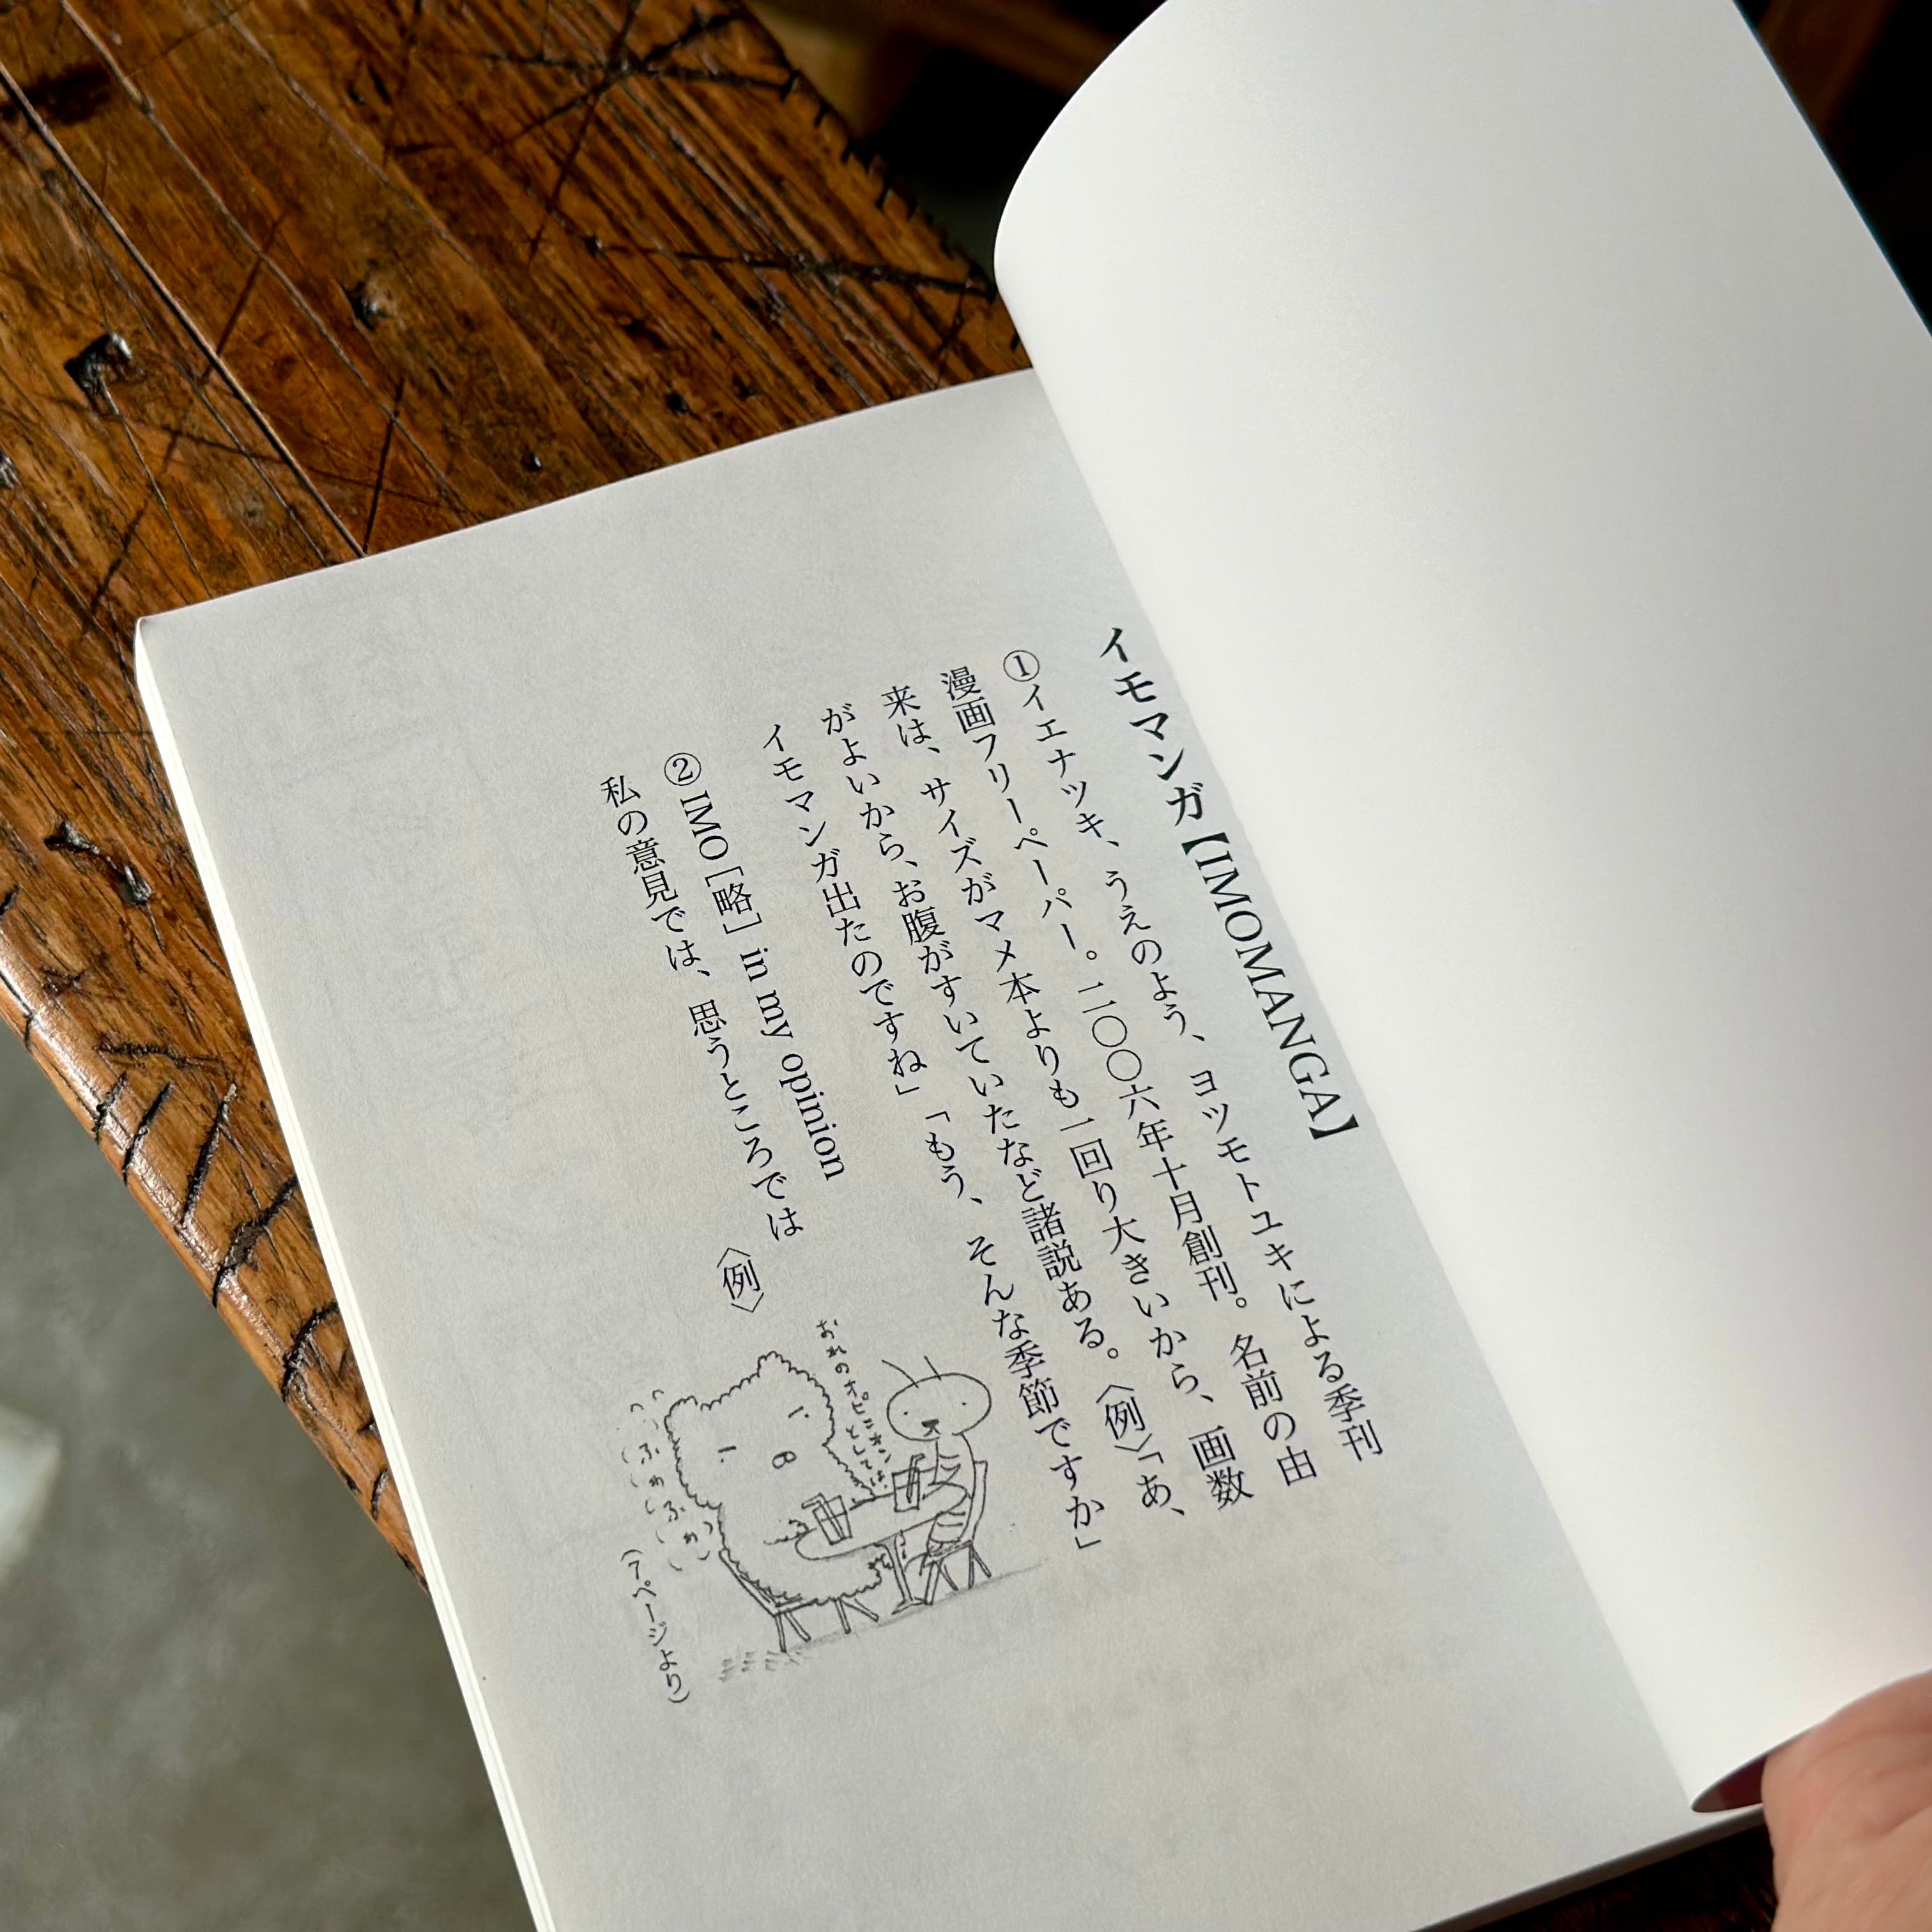 イモマンガ【IMOMANGA】
①イエナツキ、うえのよう、ヨツモトユキによる季刊
漫画フリーペーパー。二〇〇六年十月創刊。名前の由
来は、サイズがマメ本よりも一回り大きいから、画数
がよいから、お腹がすいていたなど諸説ある。〈例〉「あ、
イモマンガ出たのですね」「もう、そんな季節ですか」
②IMO［略］in my opinion
私の意見では、思うところでは
〈例〉
おれのオピニオン
としては、
ふわ
ふわ
(7ページより)